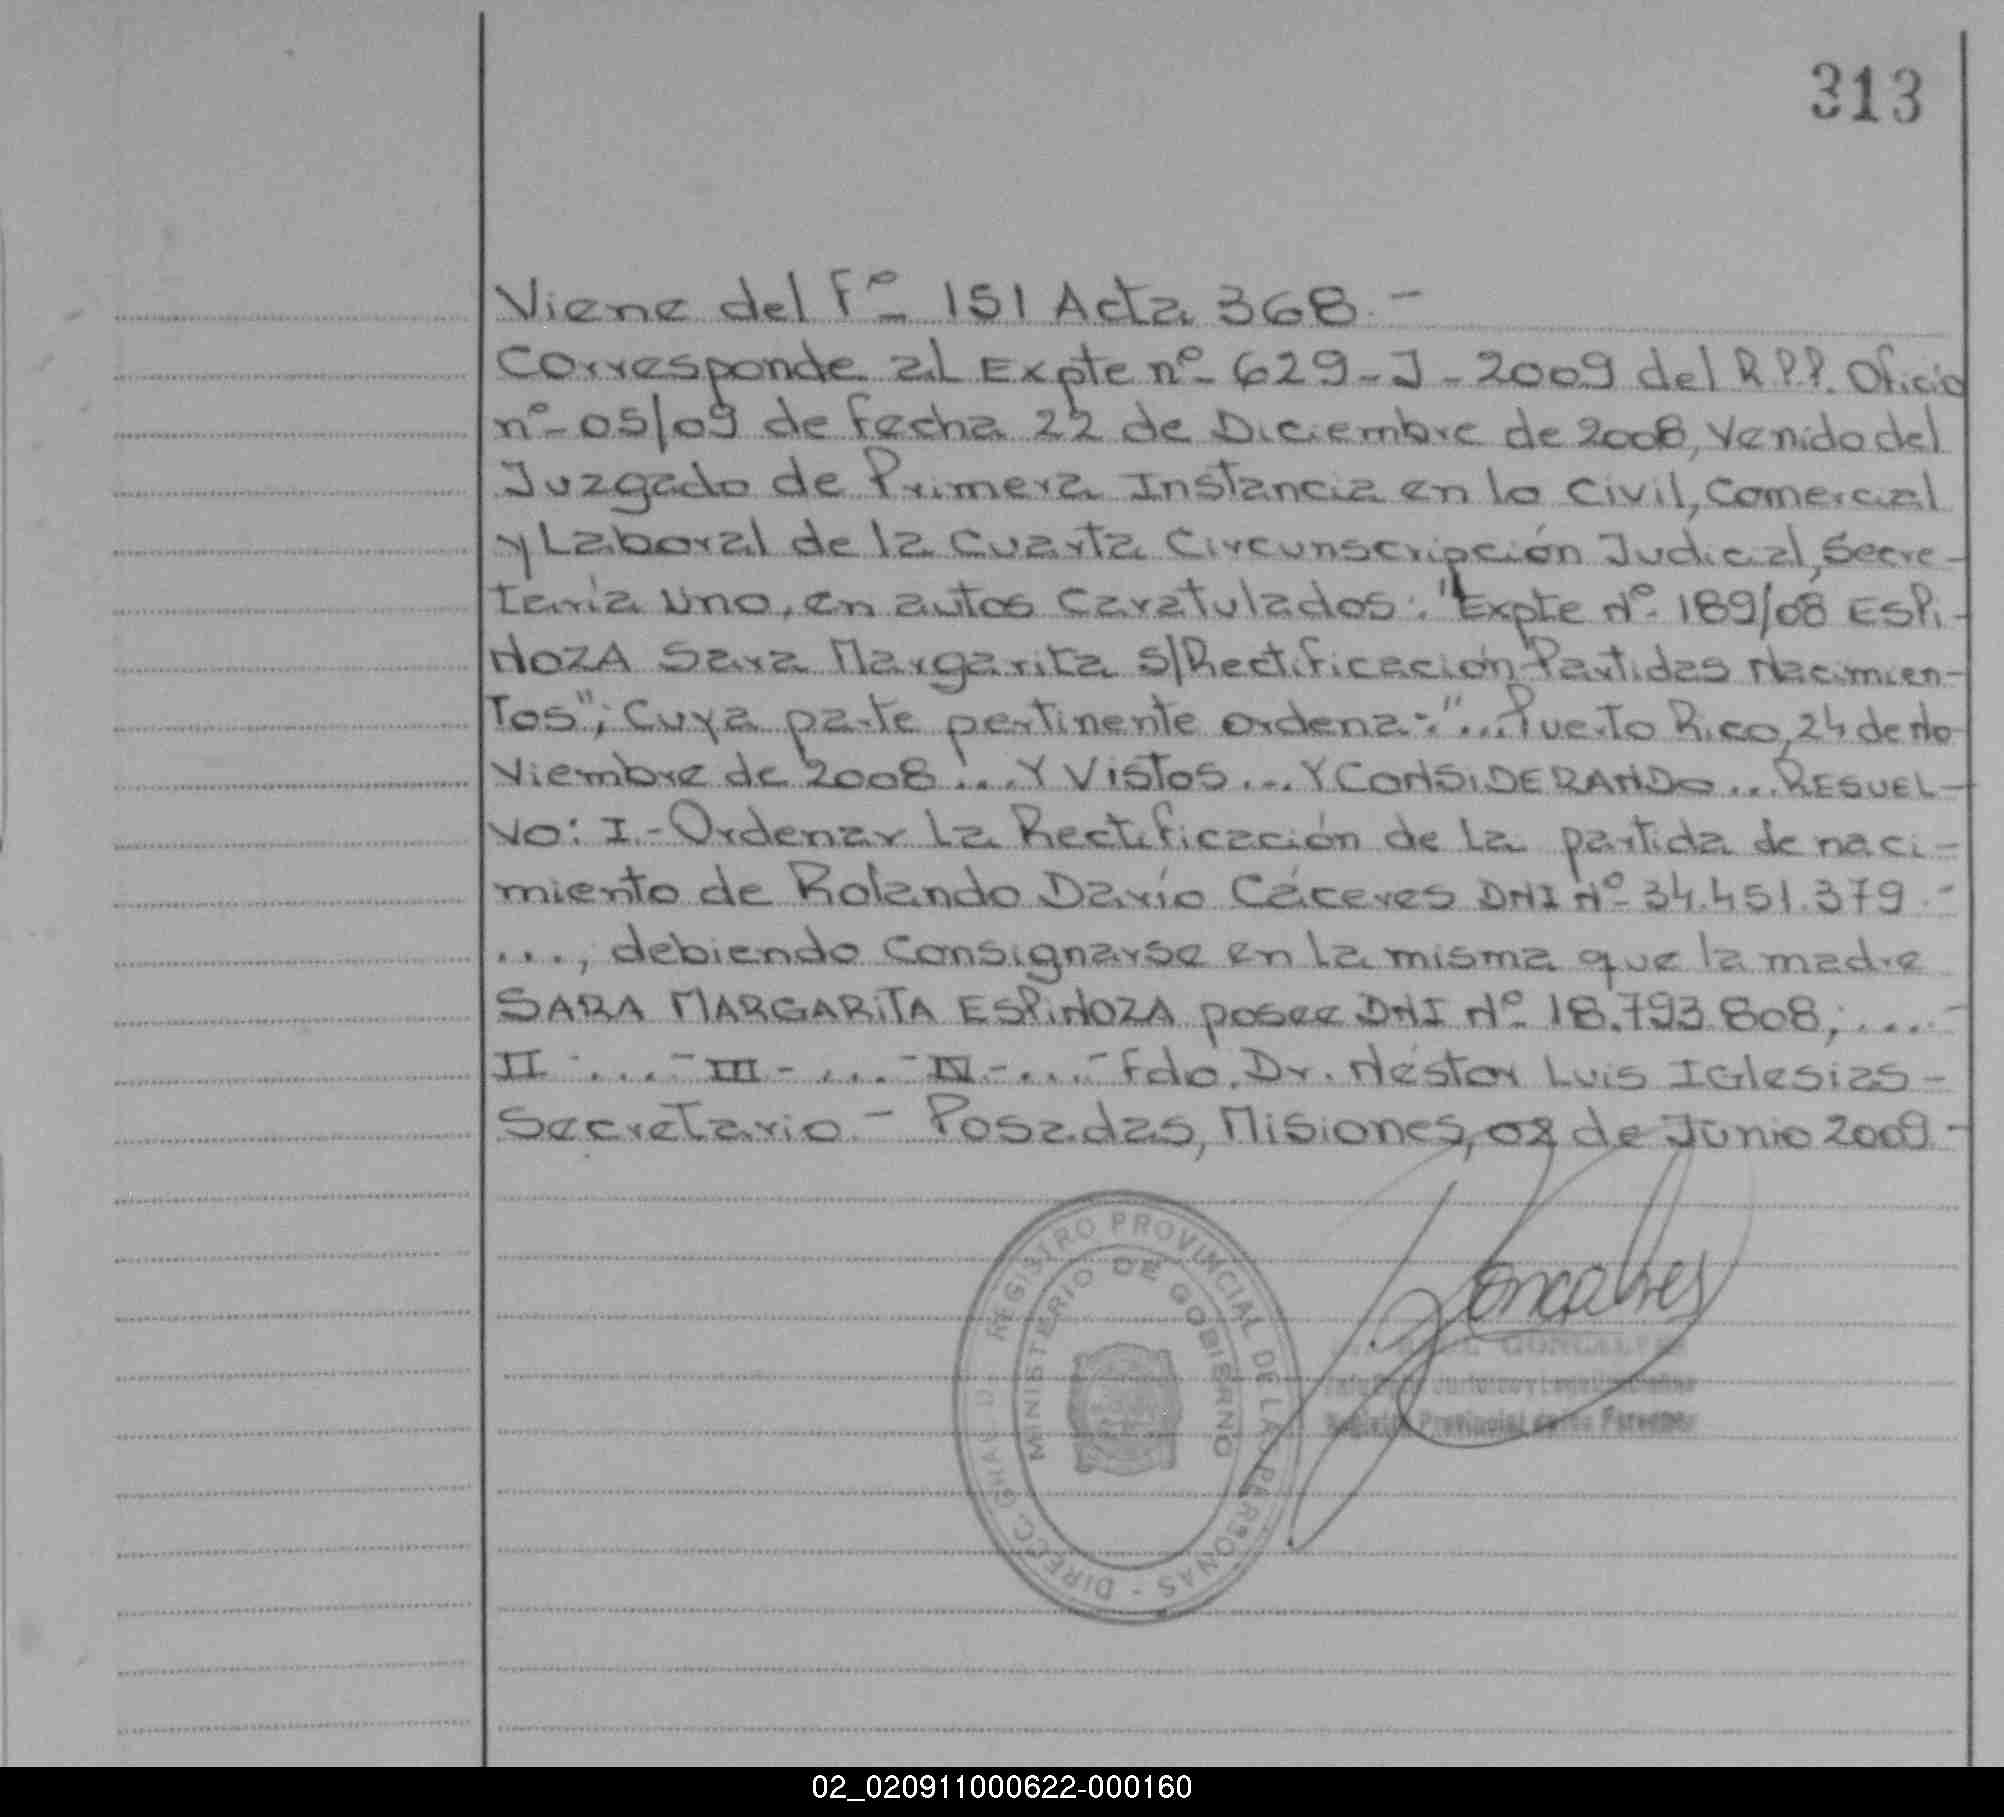 313
Viene del Fº 151 Acta 368.-
Corresponde al Expte nº 629-J-2009 del R.P.P. Oficio
nº 05/09 de fecha 22 de Diciembre de 2008, Venido del
Juzgado de Primera Instancia en lo Civil, Comercial
y Laboral de la Cuarta Circunscripción Judicial, Secre-
taria Uno, en autos Caratulados: "Expte Nº 189/08 ESPi-
NOZA Sara Margarita S/Rectificación Partidas Nacimien-
tos"; Cuya parte pertinente ordena: "...Puerto Rico, 24 de No
viembre de 2008 ... Y Vistos ... Y CONSiDERANDO ... RESUEL-
VO: I.- Ordenar la Rectificación de la partida de naci-
miento de Rolando Darío Cáceres DNI Nº 34.451.379.-
..., debiendo Consignarse en la misma que la madre
SARA MARGARiTA ESPiNOZA posee DNI Nº 18.793.808; ....-
II ....- III - ...- IV - ...- Fdo. Dr. Néstor Luis Iglesias -
Secretario - Posadas, Misiones, 02 de Junio 2009 -
REGISTRO PROVINCIAL DE LAS PERSONAS - DIRECC. GRAL.
MINISTERIO DE GOBIERNO
Goncalves
GONCALVES
Registro Provincial de las Personas
02_020911000622-000160